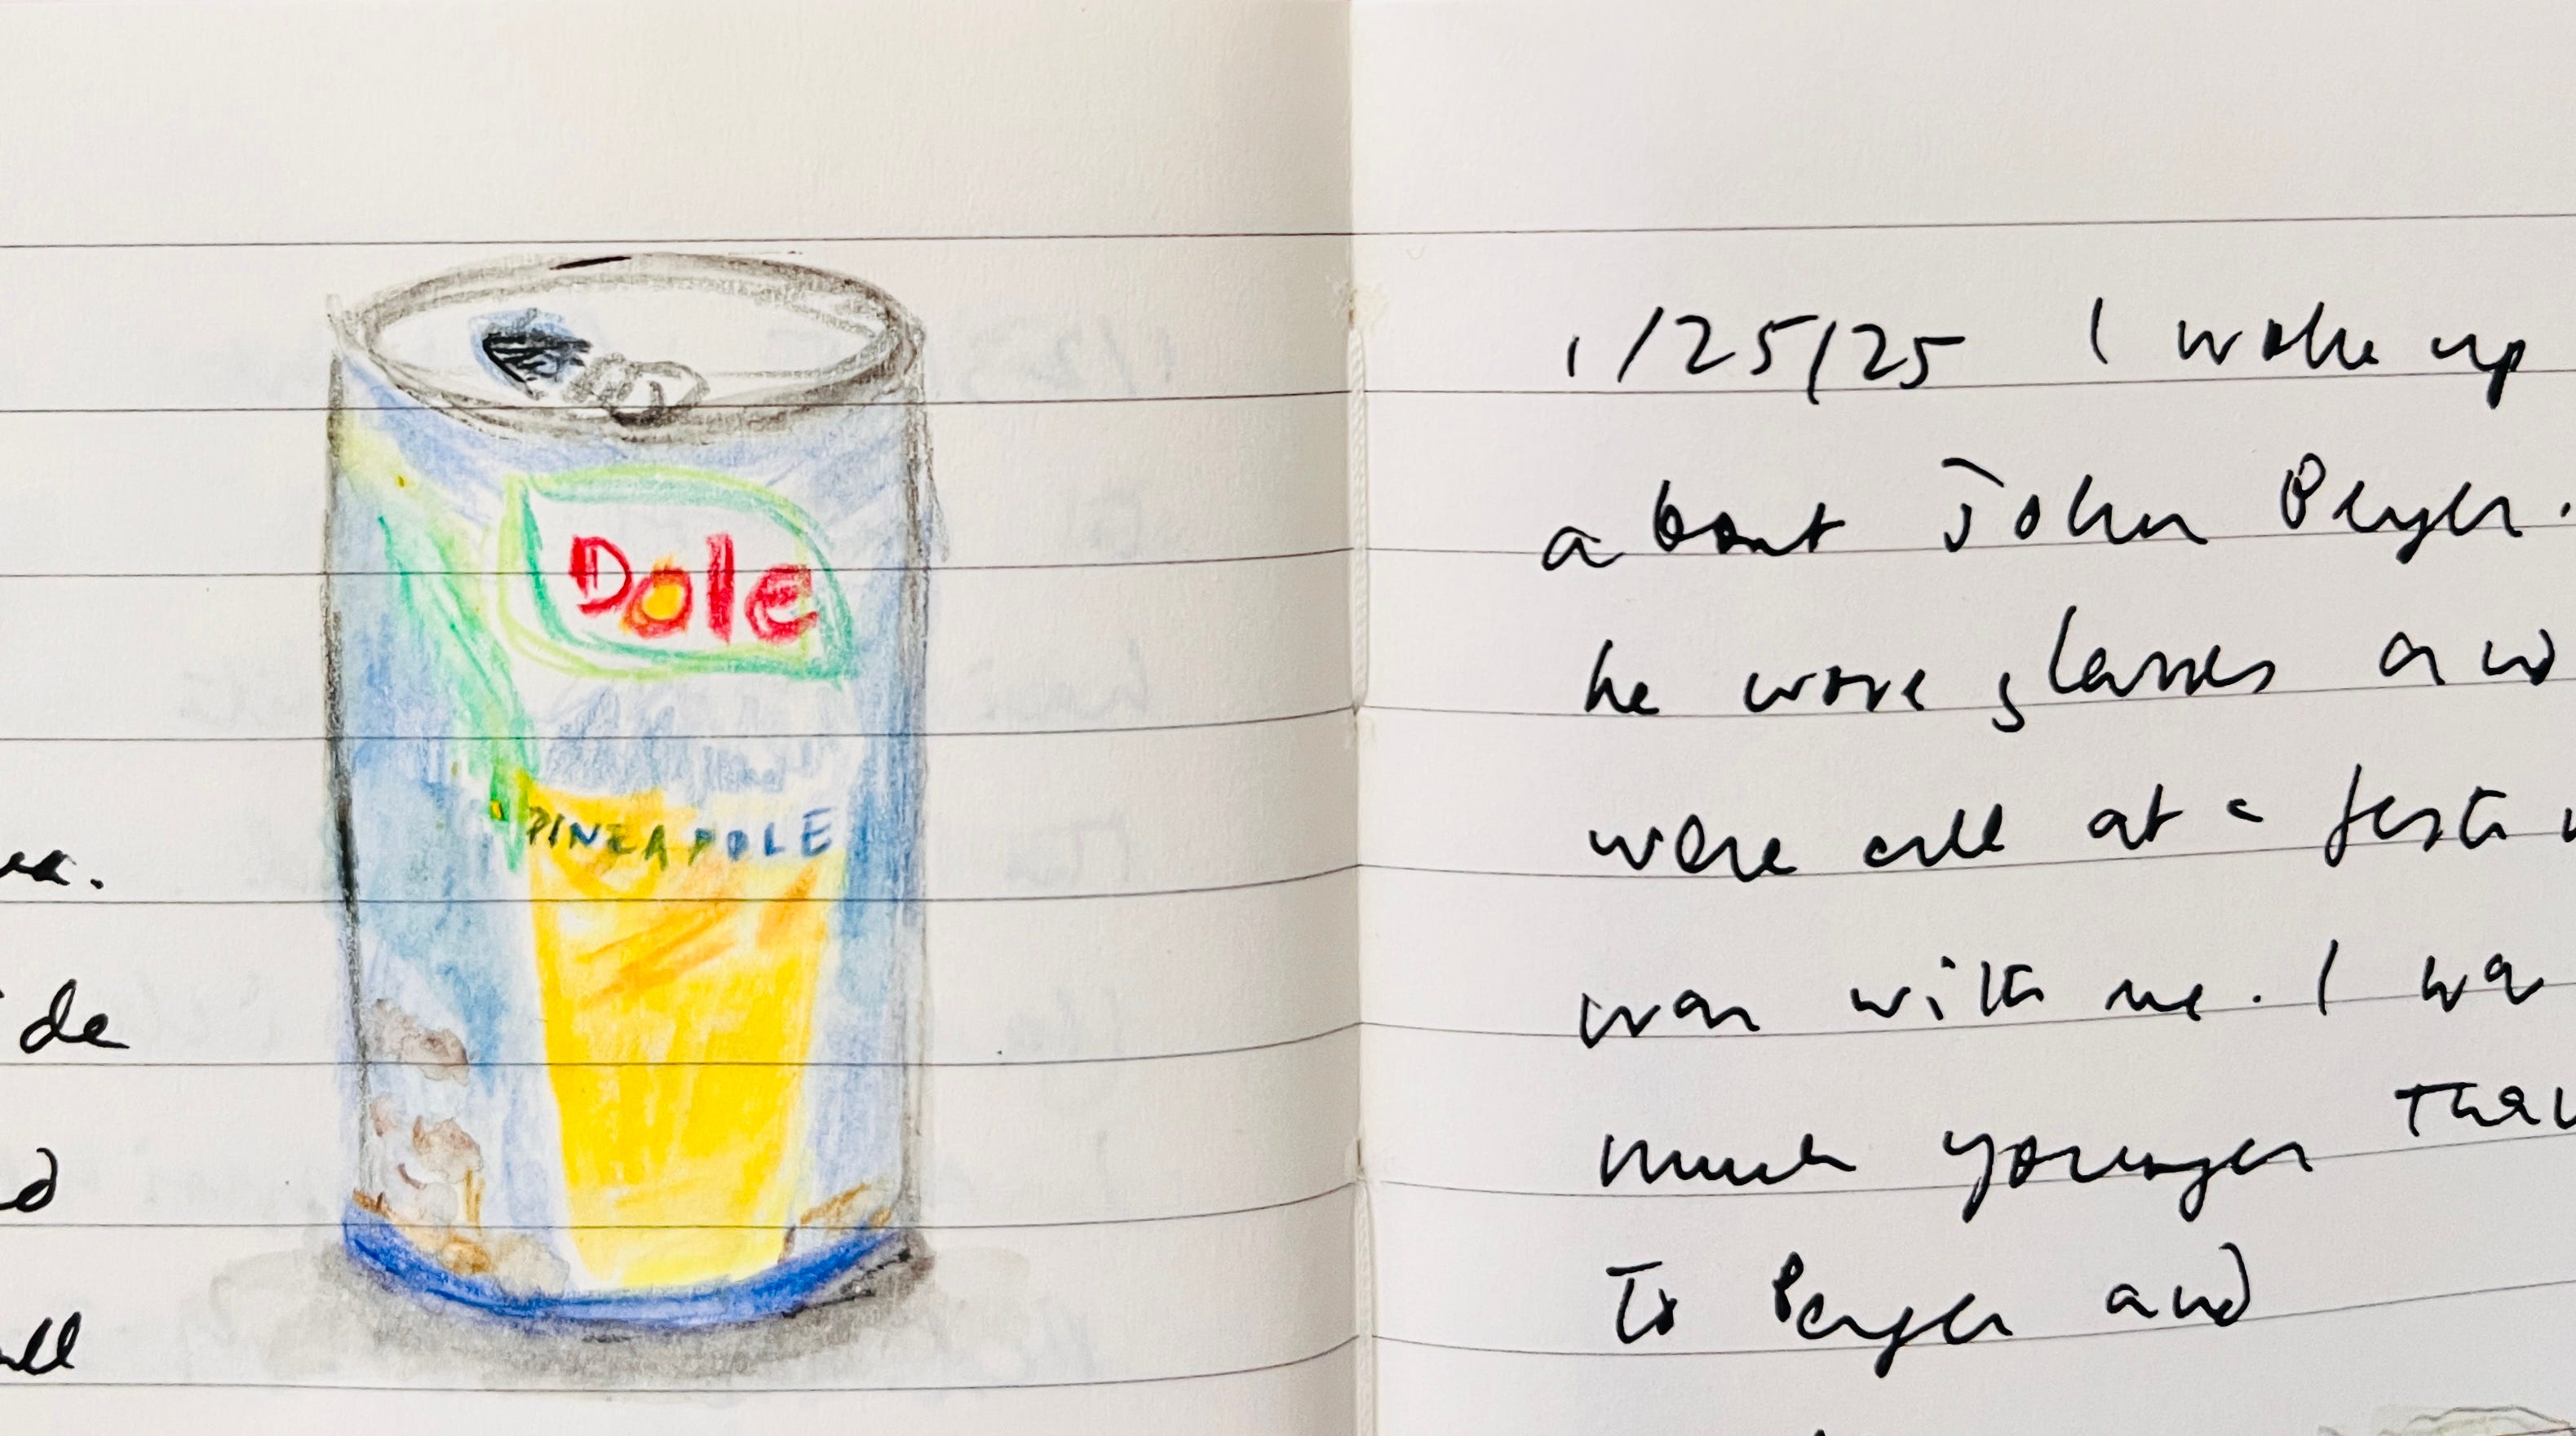 de
Dole
PINEAPPLE
1/25/25 I woke up
about John Berger.
he wore glasses and
were all at a
was with me. I wa
much younger than
to Berger and